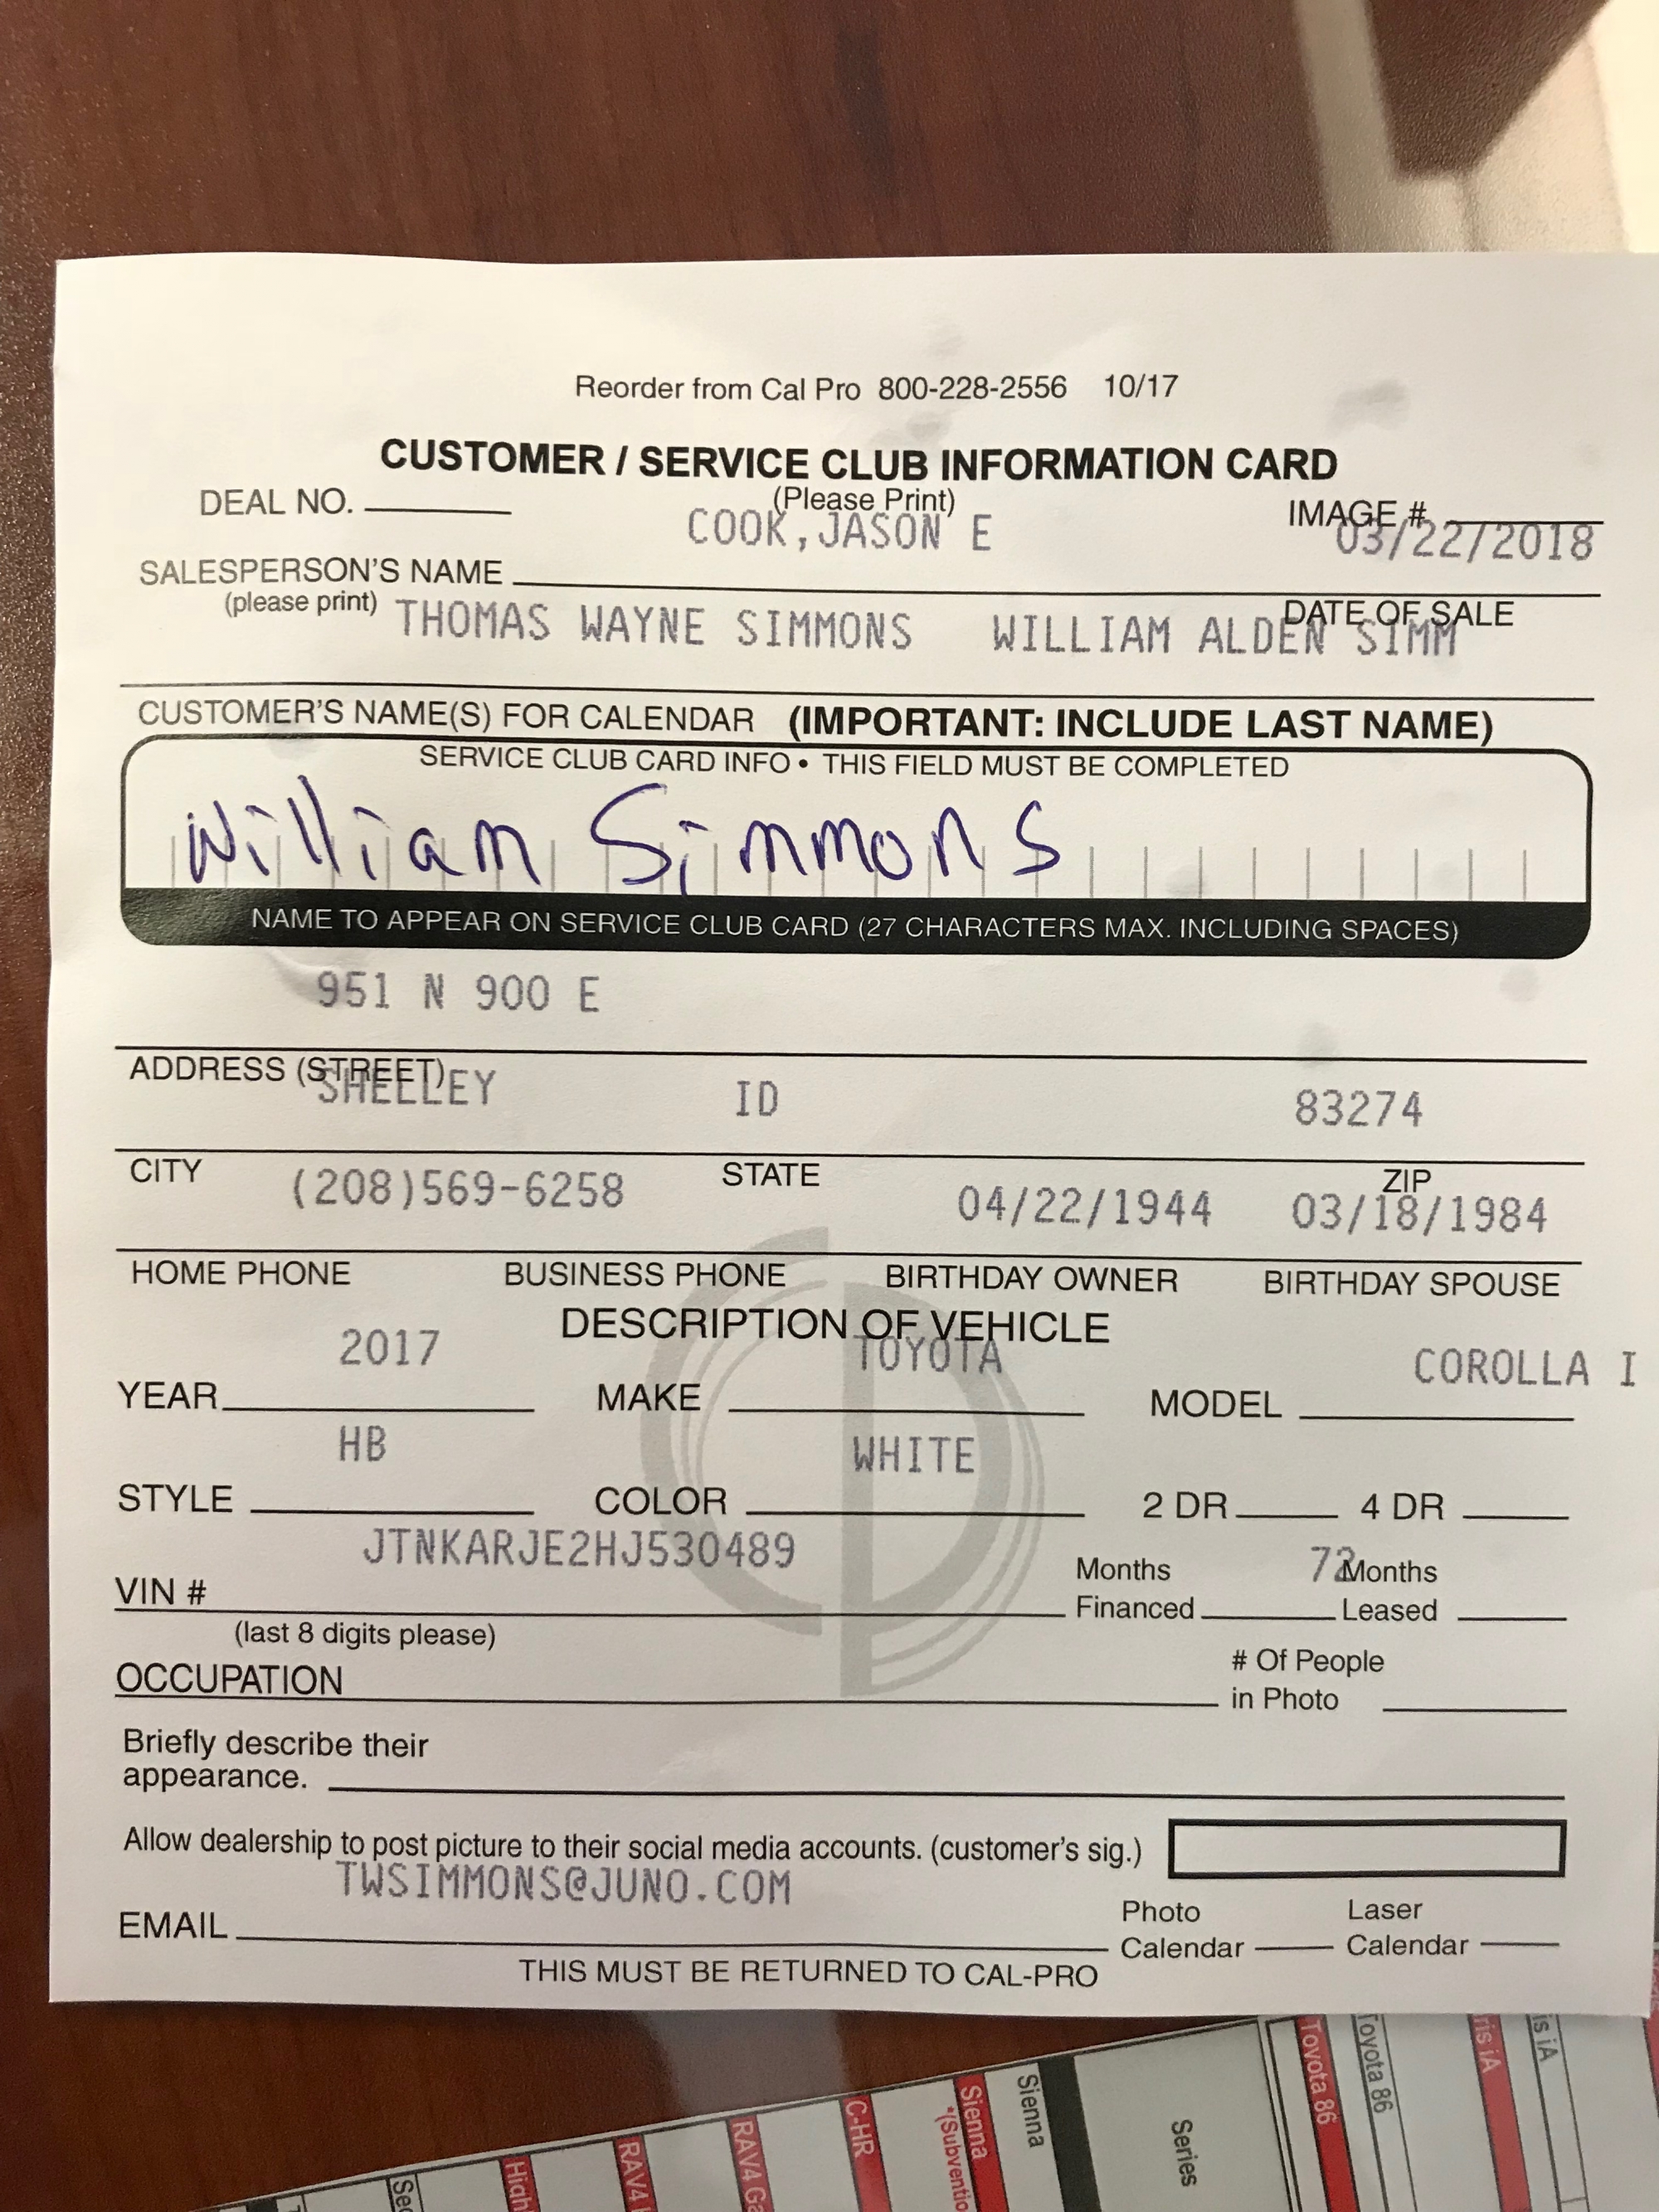 Reorder from Cal Pro 800-228-2556 10/17
CUSTOMER / SERVICE CLUB INFORMATION CARD
DEAL NO. (Please Print) IMAGE #
COOK,JASON E 03/22/2018
SALESPERSON'S NAME
(please print) DATE OF SALE
THOMAS WAYNE SIMMONS WILLIAM ALDEN SIMM
CUSTOMER'S NAME(S) FOR CALENDAR (IMPORTANT: INCLUDE LAST NAME)
SERVICE CLUB CARD INFO • THIS FIELD MUST BE COMPLETED
William Simmons
NAME TO APPEAR ON SERVICE CLUB CARD (27 CHARACTERS MAX. INCLUDING SPACES)
951 N 900 E
ADDRESS (STREET)
SHELLEY ID 83274
CITY STATE ZIP
(208)569-6258 04/22/1944 03/18/1984
HOME PHONE BUSINESS PHONE BIRTHDAY OWNER BIRTHDAY SPOUSE
DESCRIPTION OF VEHICLE
2017 TOYOTA COROLLA I
YEAR MAKE MODEL
HB WHITE
STYLE COLOR 2 DR 4 DR
JTNKARJE2HJ530489 72
VIN # Months Financed Months Leased
(last 8 digits please)
OCCUPATION # Of People in Photo
Briefly describe their
appearance.
Allow dealership to post picture to their social media accounts. (customer's sig.)
TWSIMMONS@JUNO.COM
EMAIL Photo Calendar Laser Calendar
THIS MUST BE RETURNED TO CAL-PRO
RAV4
C-HR
Sienna
*(Subventio
Sienna
Series
Toyota 86
Toyota 86